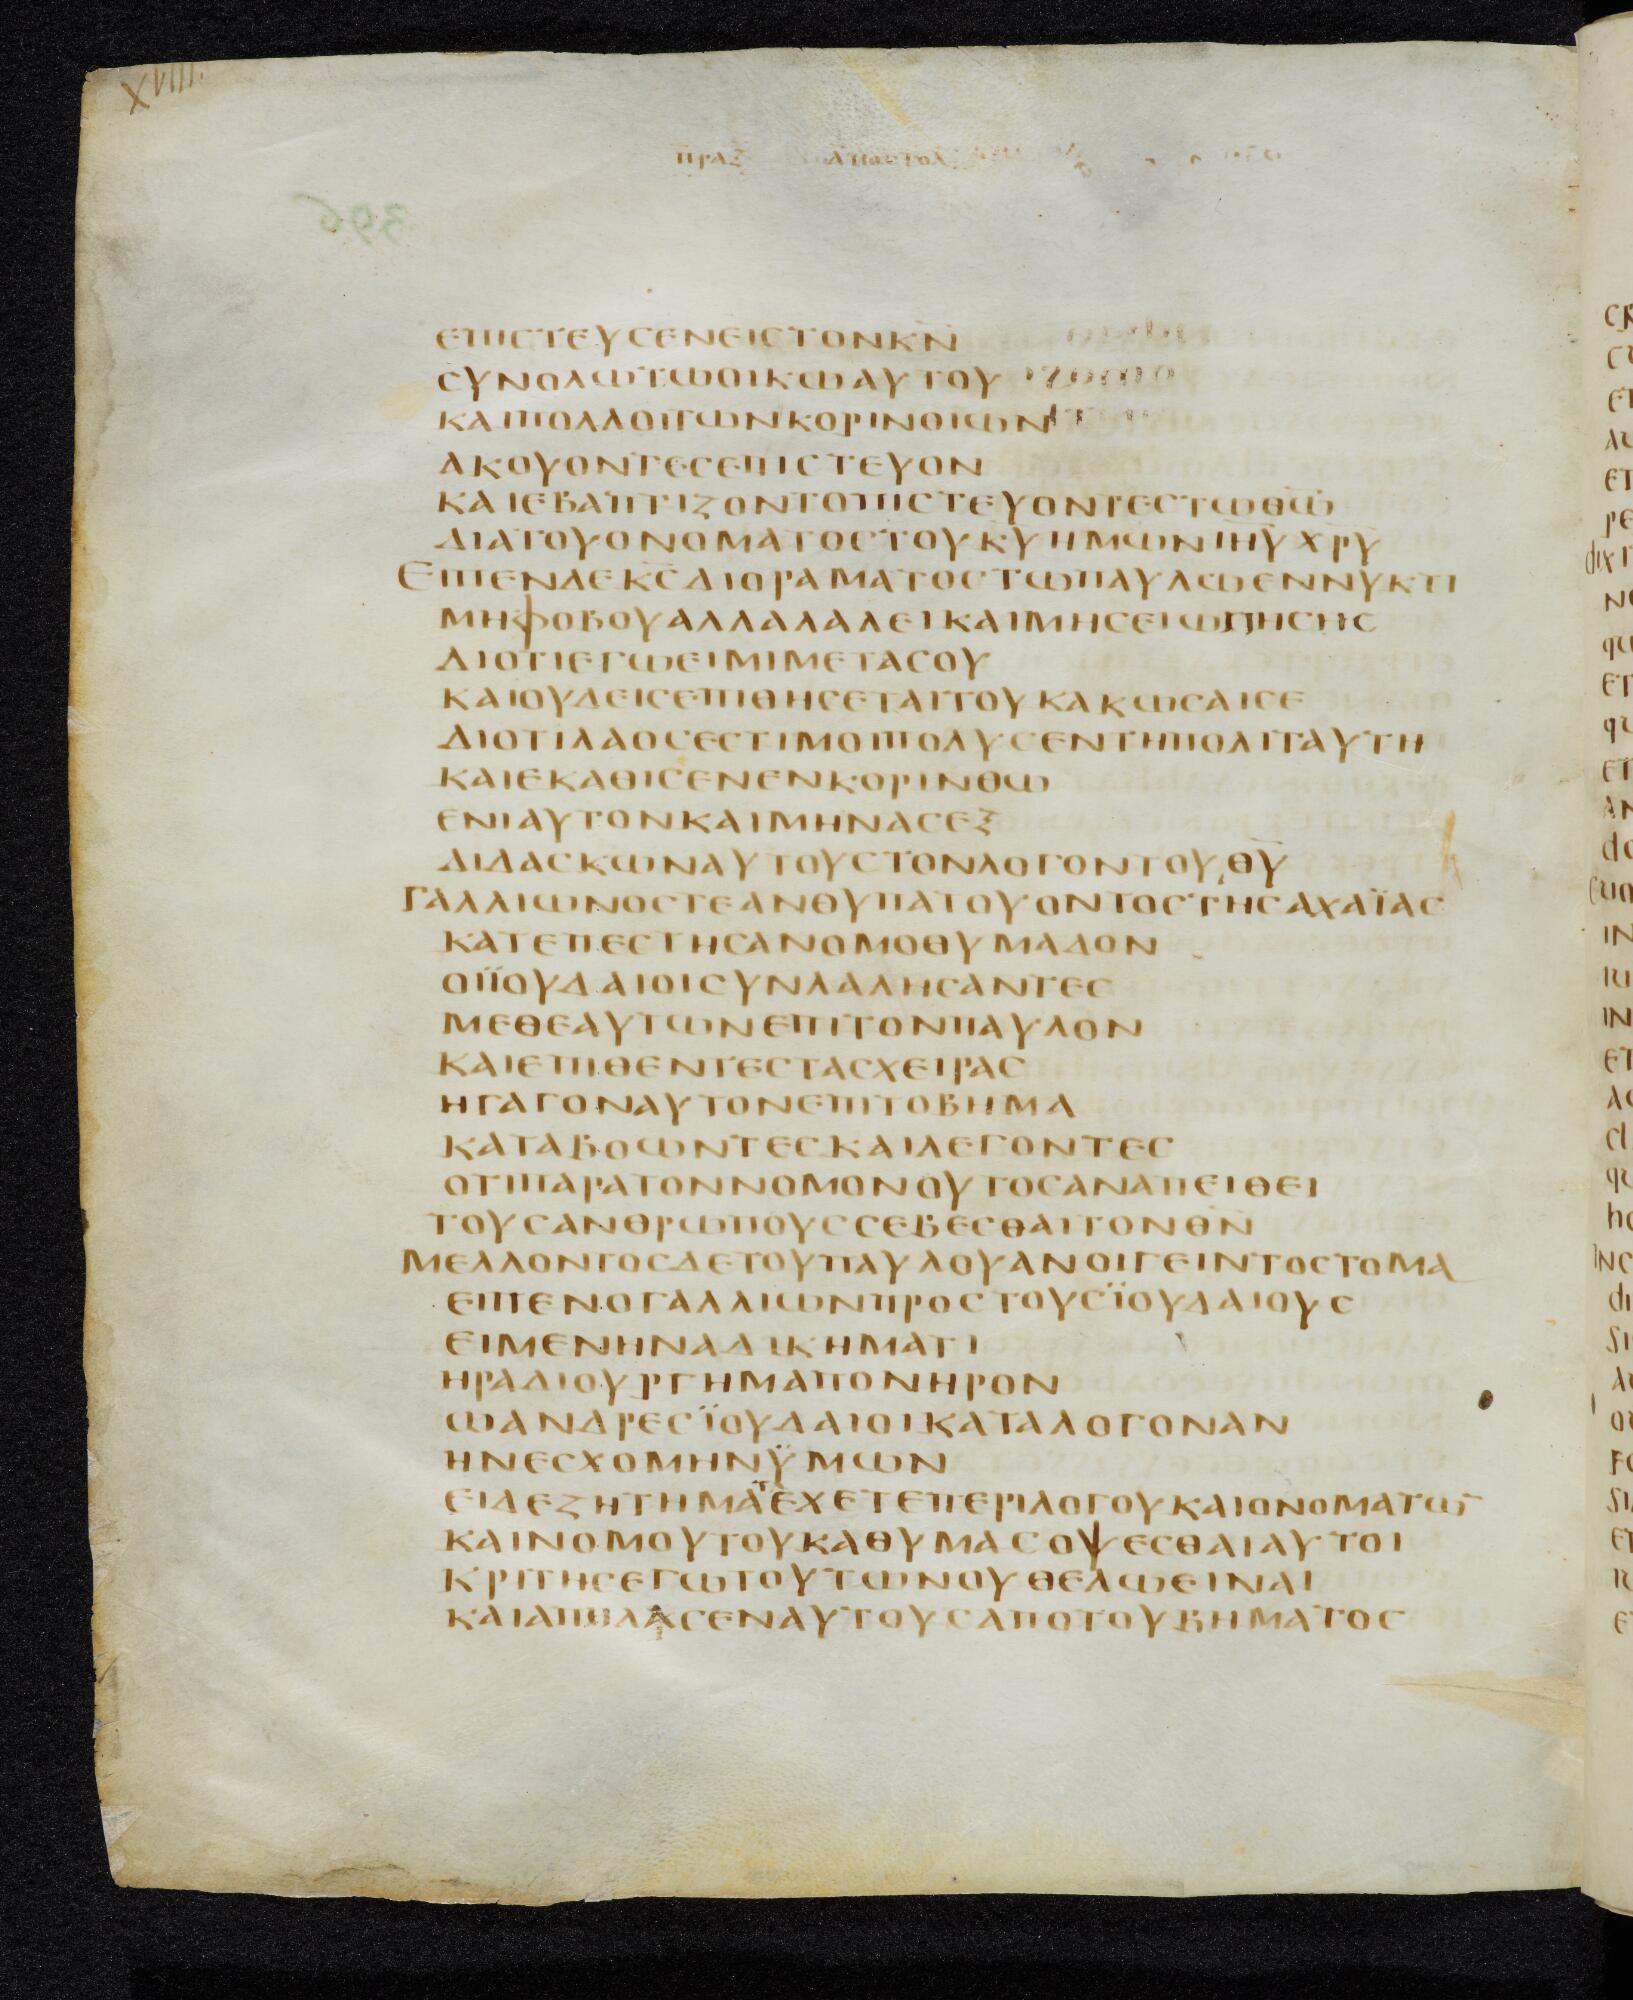 XVIII.
ΠΡΑΞ ΑΠΟΣΤΟΛ
396
ΕΠΙCΤΕΥCΕΝΕΙCΤΟΝΚ̅Ν̅
CΥΝΟΛΩΤΩΟΙΚΩΑΥΤΟΥ
ΚΑΙΠΟΛΛΟΙΤΩΝΚΟΡΙΝΘΙΩΝ
ΑΚΟΥΟΝΤΕCΕΠΙCΤΕΥΟΝ
ΚΑΙΕΒΑΠΤΙΖΟΝΤΟΠΙCΤΕΥΟΝΤΕCΤΩΘ̅Ω̅
ΔΙΑΤΟΥΟΝΟΜΑΤΟCΤΟΥΚ̅Υ̅ΗΜΩΝΙ̅Η̅Υ̅Χ̅Ρ̅Υ̅
ΕΙΠΕΝΔΕΚ̅C̅ΔΙΟΡΑΜΑΤΟCΤΩΠΑΥΛΩΕΝΝΥΚΤΙ
ΜΗΦΟΒΟΥΑΛΛΑΛΑΛΕΙΚΑΙΜΗCΕΙΩΠΗCΗC
ΔΙΟΤΙΕΓΩΕΙΜΙΜΕΤΑCΟΥ
ΚΑΙΟΥΔΕΙCΕΠΙΘΗCΕΤΑΙΤΟΥΚΑΚΩCΑΙCΕ
ΔΙΟΤΙΛΑΟCΕCΤΙΜΟΙΠΟΛΥCΕΝΤΗΠΟΛΙΤΑΥΤΗ
ΚΑΙΕΚΑΘΙCΕΝΕΝΚΟΡΙΝΘΩ
ΕΝΙΑΥΤΟΝΚΑΙΜΗΝΑCΕΞ
ΔΙΔΑCΚΩΝΑΥΤΟΥCΤΟΝΛΟΓΟΝΤΟΥΘ̅Υ̅
ΓΑΛΛΙΩΝΟCΤΕΑΝΘΥΠΑΤΟΥΟΝΤΟCΤΗCΑΧΑΪΑC
ΚΑΤΕΠΕCΤΗCΑΝΟΜΟΘΥΜΑΔΟΝ
ΟΙΪΟΥΔΑΙΟΙCΥΝΛΑΛΗCΑΝΤΕC
ΜΕΘΕΑΥΤΩΝΕΠΙΤΟΝΠΑΥΛΟΝ
ΚΑΙΕΠΙΘΕΝΤΕCΤΑCΧΕΙΡΑC
ΗΓΑΓΟΝΑΥΤΟΝΕΠΙΤΟΒΗΜΑ
ΚΑΤΑΒΟΩΝΤΕCΚΑΙΛΕΓΟΝΤΕC
ΟΤΙΠΑΡΑΤΟΝΝΟΜΟΝΟΥΤΟCΑΝΑΠΕΙΘΕΙ
ΤΟΥCΑΝΘΡΩΠΟΥCCΕΒΕCΘΑΙΤΟΝΘ̅Ν̅
ΜΕΛΛΟΝΤΟCΔΕΤΟΥΠΑΥΛΟΥΑΝΟΙΓΕΙΝΤΟCΤΟΜΑ
ΕΙΠΕΝΟΓΑΛΛΙΩΝΠΡΟCΤΟΥCΪΟΥΔΑΙΟΥC
ΕΙΜΕΝΗΝΑΔΙΚΗΜΑΤΙ
ΗΡΑΔΙΟΥΡΓΗΜΑΠΟΝΗΡΟΝ
ΩΑΝΔΡΕCΪΟΥΔΑΙΟΙΚΑΤΑΛΟΓΟΝΑΝ
ΗΝΕCΧΟΜΗΝΫΜΩΝ
ΕΙΔΕΖΗΤΗΜΑΤΕΧΕΤΕΠΕΡΙΛΟΓΟΥΚΑΙΟΝΟΜΑΤΩ̅
ΚΑΙΝΟΜΟΥΤΟΥΚΑΘΥΜΑCΟΨΕCΘΑΙΑΥΤΟΙ
ΚΡΙΤΗCΕΓΩΤΟΥΤΩΝΟΥΘΕΛΩΕΙΝΑΙ
ΚΑΙΑΠΕΛΑCΕΝΑΥΤΟΥCΑΠΟΤΟΥΒΗΜΑΤΟC